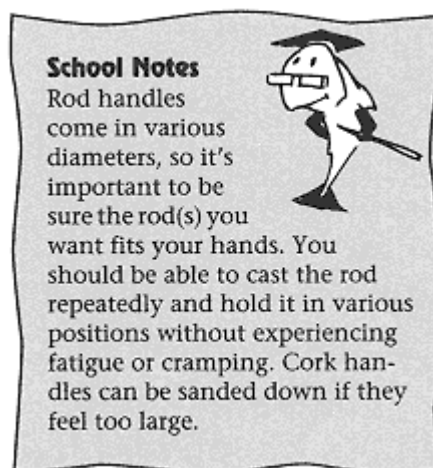 School Notes
Rod handles
come in various
diameters, so it's
important to be
sure the rod(s) you
want fits your hands. You
should be able to cast the rod
repeatedly and hold it in various
positions without experiencing
fatigue or cramping. Cork han-
dles can be sanded down if they
feel too large.